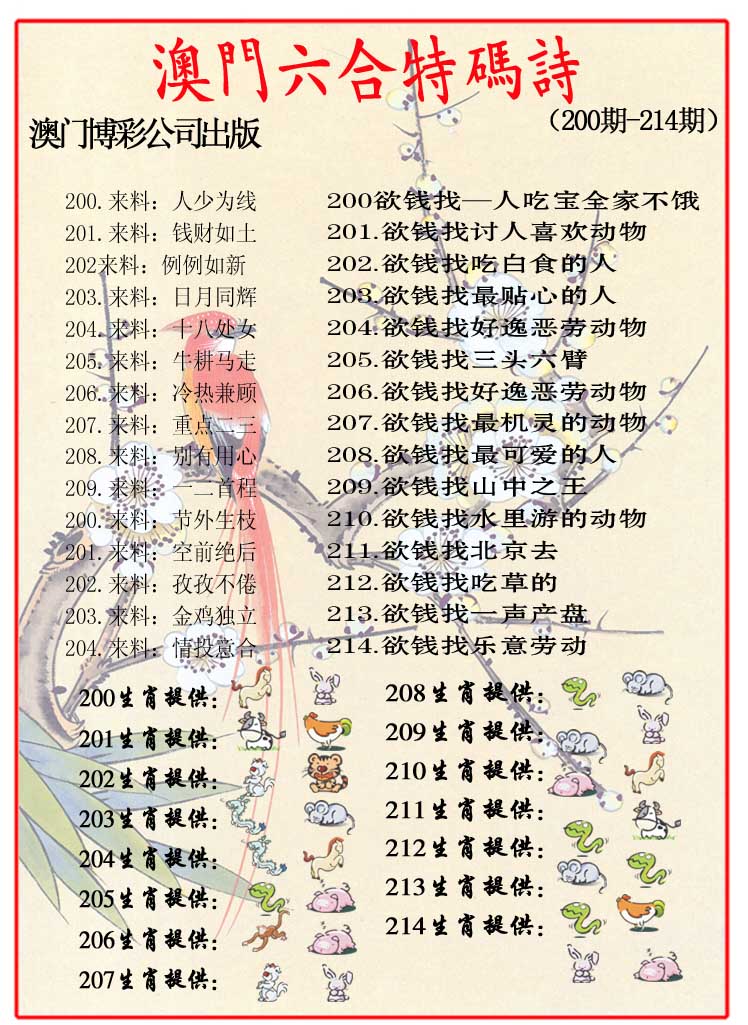 澳門六合特碼詩
澳门博彩公司出版
（200期-214期）
200.来料：人少为线
200欲钱找一人吃宝全家不饿
201.来料：钱财如土
201.欲钱找讨人喜欢动物
202来料：例例如新
202.欲钱找吃白食的人
203.来料：日月同辉
203.欲钱找最贴心的人
204.来料：十八处女
204.欲钱找好逸恶劳动物
205.来料：牛耕马走
205.欲钱找三头六臂
206.来料：冷热兼顾
206.欲钱找好逸恶劳动物
207.来料：重点二三
207.欲钱找最机灵的动物
208.来料：别有用心
208.欲钱找最可爱的人
209.来料：一二首程
209.欲钱找山中之王
200.来料：节外生枝
210.欲钱找水里游的动物
201.来料：空前绝后
211.欲钱找北京去
202.来料：孜孜不倦
212.欲钱找吃草的
203.来料：金鸡独立
213.欲钱找一声产盘
204.来料：情投意合
214.欲钱找乐意劳动
200生肖提供：
201生肖提供：
202生肖提供：
203生肖提供：
204生肖提供：
205生肖提供：
206生肖提供：
207生肖提供：
208生肖提供：
209生肖提供：
210生肖提供：
211生肖提供：
212生肖提供：
213生肖提供：
214生肖提供：